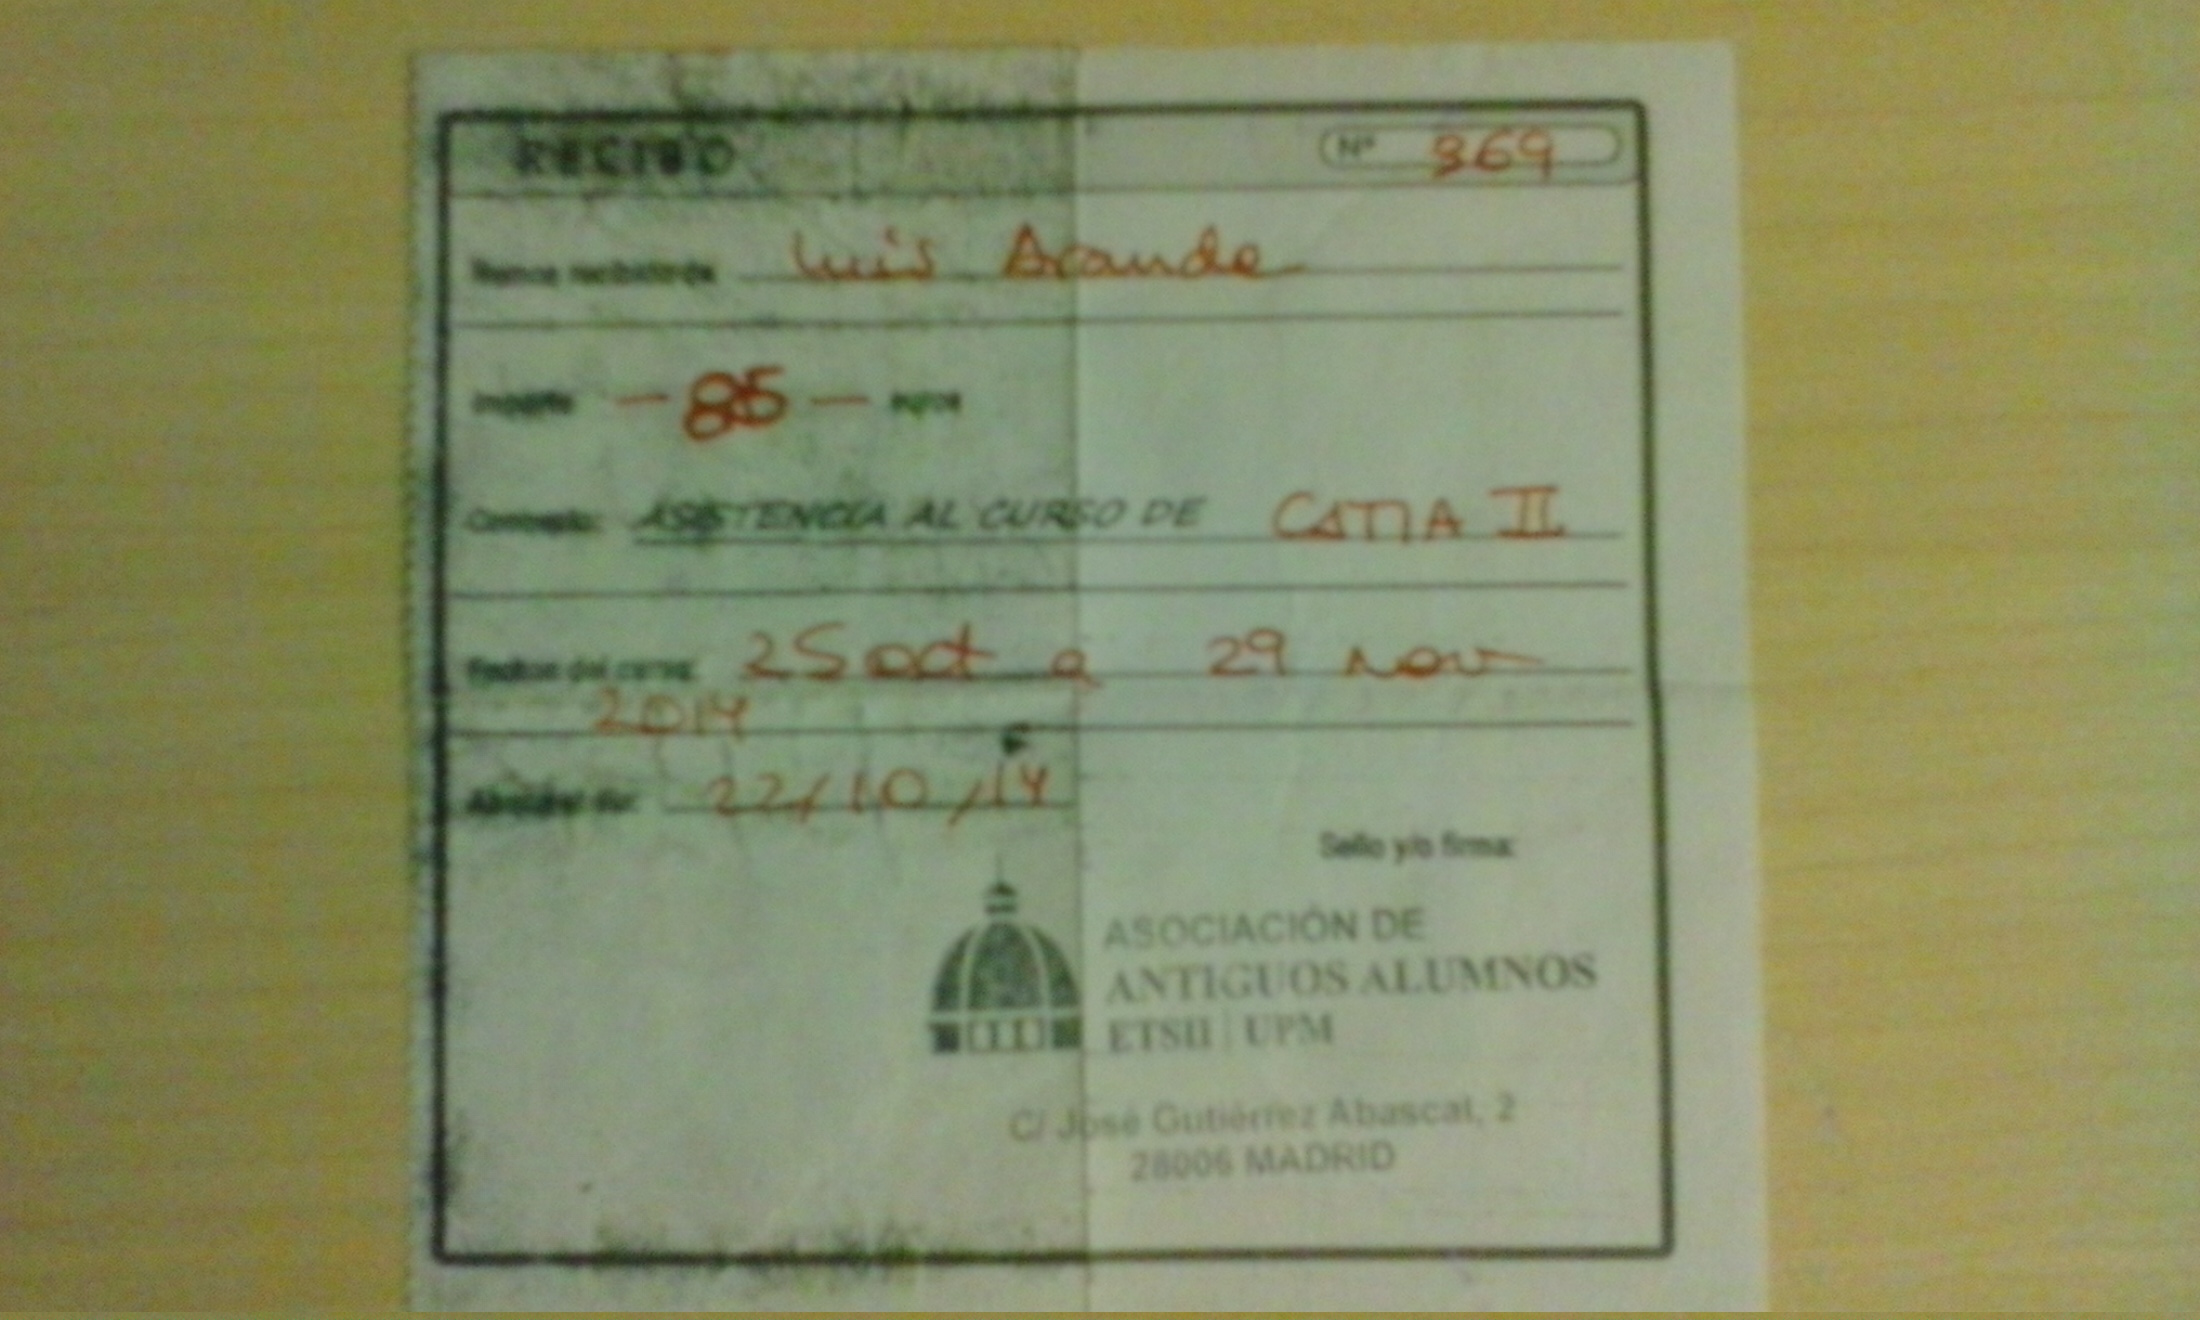 RECIBO Nº 869
Hemos recibido de Luis Aranda
Importe: - 85 - euros
Concepto: ASISTENCIA AL CURSO DE CATIA II
Fechas del curso: 25 oct a 29 nov
2014
22/10/14
Sello y/o firma:
ASOCIACIÓN DE
ANTIGUOS ALUMNOS
ETSII | UPM
C/ José Gutiérrez Abascal, 2
28006 MADRID